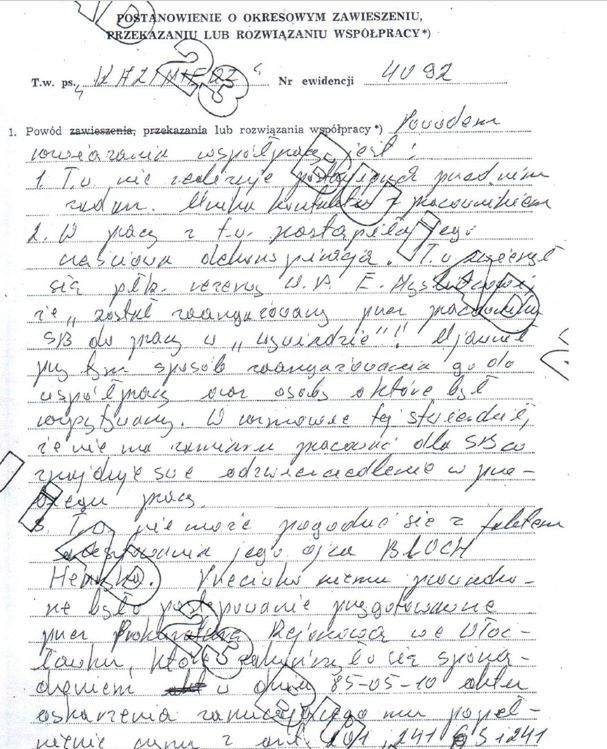 POSTANOWIENIE O OKRESOWYM ZAWIESZENIU,
PRZEKAZANIU LUB ROZWIĄZANIU WSPÓŁPRACY*)
T.w. ps. „KAZIMIERZ” Nr ewidencji 40 92
1. Powód zawieszenia, przekazania lub rozwiązania współpracy*) Powodem
rozwiązania współpracy jest:
1. T.w. nie realizuje postawionych przed nim
zadań. Unika kontaktów z pracownikiem
2. W pracy z t.w. nastąpiła jego
celowa dekonspiracja. T.w. zwierzył
się płk. rezerwy W.P. E.
że „został zaangażowany przez pracownika
SB do pracy w „wywiadzie”! Ujawnił
przy tym sposób zaangażowania go do
współpracy oraz osoby o które był
wypytywany. W rozmowie tej stwierdził,
że nie ma zamiaru pracować dla SB co
znajduje swe odzwierciedlenie w prze-
biegu pracy.
3. T.w. nie może pogodzić się z faktem
aresztowania jego ojca BLOCH
Henryka. Przeciwko niemu prowadzo-
ne było postępowanie przygotowawcze
przez Prokuraturę Rejonową we Włoc-
ławku, które zakończyło się sporzą-
dzeniem w dniu 85-05-10 aktu
oskarżenia zarzucającego mu popeł-
nienie czynu z art. 201 i 241 § 1 i 241